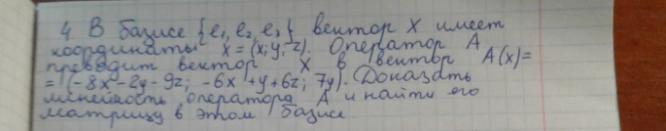 4 В базисе {e₁, e₂, e₃} вектор x имеет
координаты x = (x; y; z). Оператор A
приводит вектор x в вектор A(x)=
= (-8x-2y-9z; -6x+y+6z; 7y). Доказать
линейность оператора A и найти его
матрицу в этом базисе